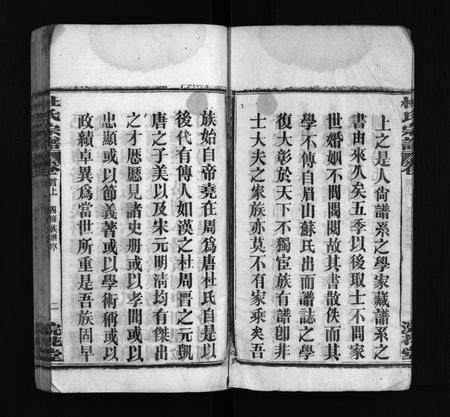 上之是人尙譜系之學家藏譜系之
書由來久矣五季以後取士不問家
世婚姻不問閥閱故其書散佚而其
學不傳自眉山蘇氏出而譜誌之學
復大彰於天下不獨宦族有譜卽非
士大夫之家族亦莫不有家乘矣吾
族始自帝堯在周爲唐杜氏自是以
後代有傳人如漢之杜周晋之元凱
唐之子美以及宋元明淸均有傑出
之才歷歷見諸史册或以孝聞或以
忠顯或以節義著或以學術稱或以
政績卓異爲當世所重是吾族固早
杜氏宗譜
卷首上
二
浣花堂